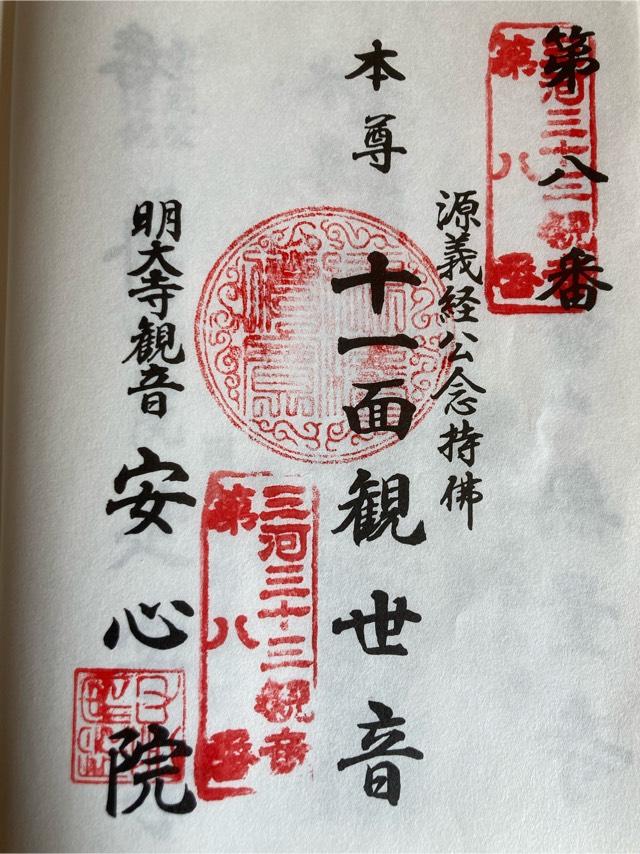 第八番
三河三十三観音
第八番
源義経公念持佛
本尊
十一面観世音
三河三十三観音
第八番
明大寺観音
安心院